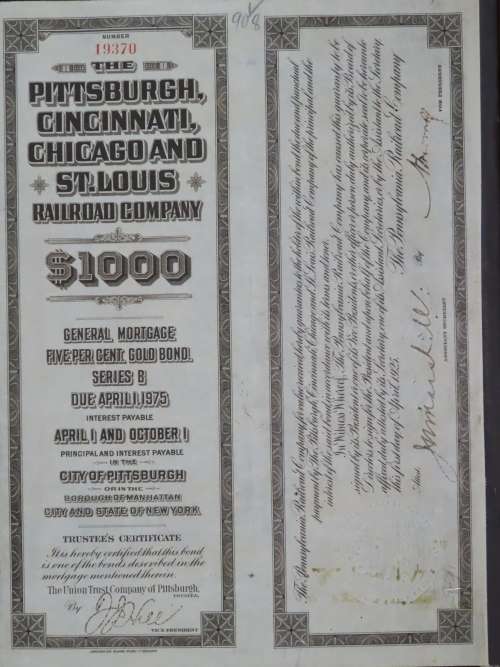 908
NUMBER
19370
THE
PITTSBURGH,
CINCINNATI,
CHICAGO AND
ST. LOUIS
RAILROAD COMPANY
$1000
GENERAL MORTGAGE
FIVE PER CENT. GOLD BOND,
SERIES B
DUE APRIL 1, 1975
INTEREST PAYABLE
APRIL 1 AND OCTOBER 1
PRINCIPAL AND INTEREST PAYABLE
IN THE
CITY OF PITTSBURGH
OR IN THE
BOROUGH OF MANHATTAN
CITY AND STATE OF NEW YORK.
TRUSTEE'S CERTIFICATE
It is hereby certified that this bond
is one of the bonds described in the
mortgage mentioned therein.
The Union Trust Company of Pittsburgh,
TRUSTEE,
By
VICE PRESIDENT
The Pennsylvania Railroad Company for value received hereby guarantees to the holder of the within bond the due and punctual
payment by The Pittsburgh, Cincinnati, Chicago and St. Louis Railroad Company of the principal and the
interest of the said bond in accordance with its terms and tenor.
In Witness Whereof, The Pennsylvania Railroad Company has caused this guaranty to be
signed by its President or one of its Vice Presidents or other officer or person duly authorized by its Board of
Directors to sign for the President and upon behalf of this Company, and its company seal to be hereunto
affixed duly attested by its Secretary, one of its Assistant Secretaries, or by the Assistant to the Secretary,
this first day of April 1925.
The Pennsylvania Railroad Company
Attest
By
FOR PRESIDENT
ASSISTANT SECRETARY